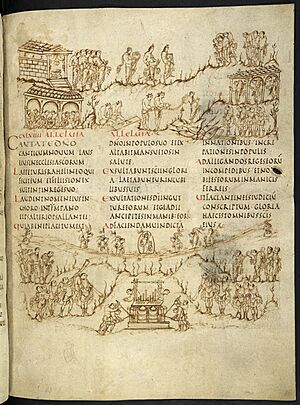 ALLELUIA
CANTATE DNO
CANTICUM NOUUM LAUS
EIUS IN ECLESIA SCORUM
LAETETUR ISRAHEL IN EO QUI
FECIT EUM ET FILII SION
EXULTENT IN REGE SUO
LAUDENT NOMEN EIUS IN
CHORO IN TYMPANO
ET PSALTERIO PSALLANT EI
QUIA BENEPLACITUM EST
ALLELUIA
DNO IN POPULO SUO ET EX
ALTABIT MANSUETOS IN
SALUTE
EXSULTABUNT SCI IN GLORI
A LAETABUNTUR IN CUBI
LIBUS SUIS
EXULTATIONES DI IN GUT
TURE EORUM ET GLADII
ANCIPITES IN MANIB EORU
AD FACIENDAM UINDICTA
IN NATIONIBUS INCRE
PATIONES IN POPULIS
AD ALLIGANDOS REGES EORU
IN COMPEDIBUS ET NO
BILES EORUM IN MANICIS
FERREIS
UT FACIANT IN EIS IUDICIU
CONSCRIPTUM GLORIA
HAEC EST OMNIBUS SCIS
EIUS